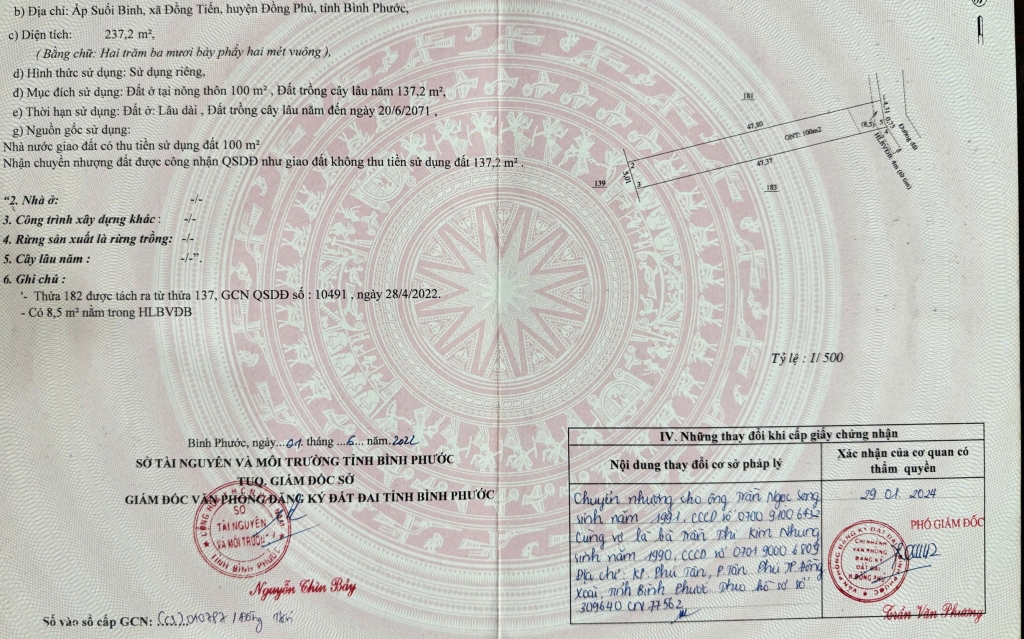 b) Địa chỉ: Ấp Suối Binh, xã Đồng Tiến, huyện Đồng Phú, tỉnh Bình Phước,
c) Diện tích: 237,2 m²,
( Bằng chữ: Hai trăm ba mươi bảy phẩy hai mét vuông ),
d) Hình thức sử dụng: Sử dụng riêng,
đ) Mục đích sử dụng: Đất ở tại nông thôn 100 m² , Đất trồng cây lâu năm 137,2 m²,
e) Thời hạn sử dụng: Đất ở: Lâu dài , Đất trồng cây lâu năm đến ngày 20/6/2071 ,
g) Nguồn gốc sử dụng:
Nhà nước giao đất có thu tiền sử dụng đất 100 m²
Nhận chuyển nhượng đất được công nhận QSDĐ như giao đất không thu tiền sử dụng đất 137,2 m² .
“2. Nhà ở: -/-
3. Công trình xây dựng khác : -/-
4. Rừng sản xuất là rừng trồng: -/-
5. Cây lâu năm : -/-”.
6. Ghi chú :
'- Thửa 182 được tách ra từ thửa 137, GCN QSDĐ số : 10491 , ngày 28/4/2022.
- Có 8,5 m² nằm trong HLBVĐB
181
47,80
ONT: 100m2
(8,5)
4,31
0,75
Đường đất
HLBVĐB 4m (lộ tim)
2
5,01
3
47,37
139
183
Tỷ lệ : 1/ 500
Bình Phước, ngày...01. tháng ...6... năm.2022
SỞ TÀI NGUYÊN VÀ MÔI TRƯỜNG TỈNH BÌNH PHƯỚC
TUQ. GIÁM ĐỐC SỞ
GIÁM ĐỐC VĂN PHÒNG ĐĂNG KÝ ĐẤT ĐAI TỈNH BÌNH PHƯỚC
SỞ
TÀI NGUYÊN
VÀ MÔI TRƯỜNG
TỈNH BÌNH PHƯỚC
Nguyễn Thìn Bảy
Số vào sổ cấp GCN: (CS)..010787 / Đồng Tiến
IV. Những thay đổi khi cấp giấy chứng nhận
Nội dung thay đổi cơ sở pháp lý
Xác nhận của cơ quan có thẩm quyền
Chuyển nhượng cho ông Trần Ngọc Song
sinh năm 1991, CCCD số 0700 9100 6432
Cùng vợ là bà Trần Thị Kim Nhung
sinh năm 1990, CCCD số 0701 9000 6809
Địa chỉ: KP. Phú Tân, P. Tân Phú TP Đồng
Xoài, Tỉnh Bình Phước Theo hồ sơ số
309640 CN 77562
29.01.2024
PHÓ GIÁM ĐỐC
CHI NHÁNH
VĂN PHÒNG
ĐĂNG KÝ
ĐẤT ĐAI
H.ĐỒNG PHÚ
Trần Văn Phương